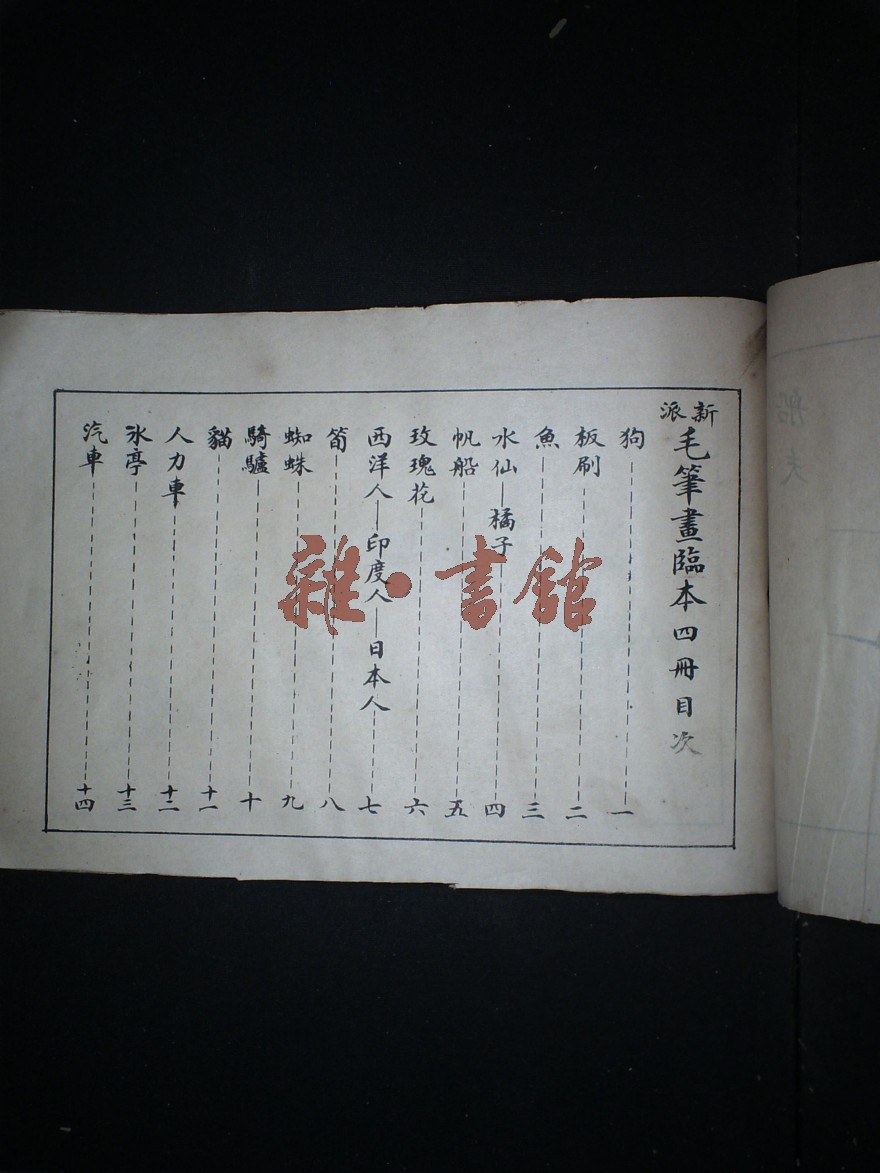 新派毛筆畫臨本四冊目次
狗 一
板刷 二
魚 三
水仙—橘子 四
帆船 五
玫瑰花 六
西洋人—印度人—日本人 七
筍 八
蜘蛛 九
騎驢 十
貓 十一
人力車 十二
氷亭 十三
汽車 十四
雜·書館
船夫